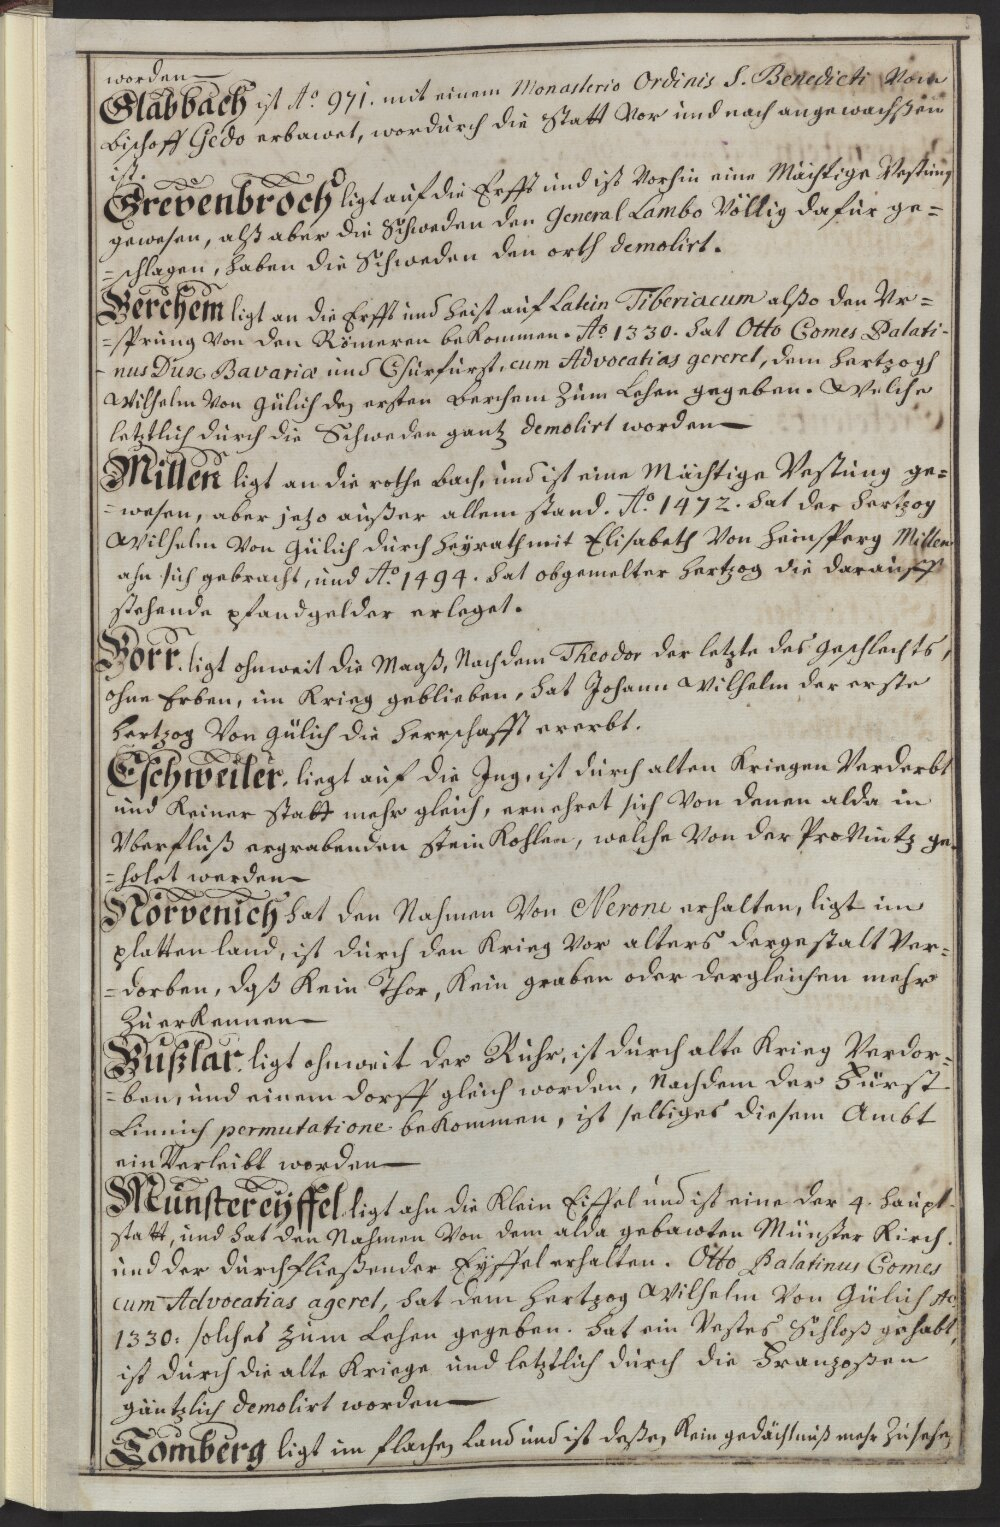 worden
Glabbach ist Ao. 971. mit einem Monasterio Ordinis S. Benedicti Vom
Bischoff Gedo erbawet, wordurch die Statt Vor und nach angewachßen
ist.
Grevenbroch ligt auf die Erfft und ist Vorhin eine Mächtige Vestung
gewesen, alß aber die Schweden den General Lambo Völlig dafür ge=
=schlagen, haben die Schweden den orth demolirt.
Berchem ligt an die Erfft und heist auf Latein Tiberiacum alßo den Vr=
=sprung Von den Römeren bekommen. Ao. 1330. hat Otto Comes Palati-
-nus Dux Bavariæ und Churfürst, cum Advocatias gereret, dem Hertzogh
Wilhelm Von Gülich den ersten Berchem Zum Lehen gegeben. Welche
letztlich durch die Schweden gantz demolirt worden
Millen ligt an die rothe bach, und ist eine Mächtige Vestung ge=
=wesen, aber jetzo außer allem stand. Ao. 1472. hat der Hertzog
Wilhelm Von Gülich durch Heyrath mit Elisabeth Von Heinsperg Millen
ahn sich gebracht, und Ao. 1494. hat obgemelter Hertzog die darauff
stehende pfandgelder erleget.
Borr. ligt ohnweit die Maaß, Nachdem Theodor der letzte des Geschlechts,
ohne Erben, im Krieg geblieben, hat Johann Wilhelm der erste
Hertzog Von Gülich die Herrschafft ererbt.
Eschweiler. liegt auf die Ing, ist durch alten Kriegen Verderbt
und Keiner statt mehr gleich, ernehret sich Von denen alda in
Vberfluß ergrabenden stein Kohlen, welche Von der Provintz ge-
=holet werden
Nörvenich hat den Nahmen Von Nerone erhalten, ligt im
platten land, ist durch den Krieg Vor alters dergestalt Ver=
=dorben, daß Kein Thor, Kein graben oder dergleichen mehr
Zu erkennen
Bußlar. ligt ohnweit der Ruhr, ist durch alte Krieg Verdor=
=ben, und einem dorff gleich worden, Nachdem der Fürst
Linnich permutatione bekommen, ist selbiges diesem Ambt
ein Verleibt worden
Münstereyffel ligt ahn die Klein Eiffel und ist eine der 4. haupt-
statt, und hat den Nahmen Von dem alda gebawten Münster Kirch.
und der durchfließender Eyffel erhalten. Otto Palatinus Comes
cum Advocatias ageret, hat dem Hertzog Wilhelm Von Gülich Ao
1330. solches Zum Lehen gegeben. hat ein Vestes Schloß gehabt,
ist durch die alte Kriege und letztlich durch die Franzoßen
gäntzlich demolirt worden
Tomberg ligt im flachen Land und ist deßen Kein gedächtnuß mehr Zu sehen